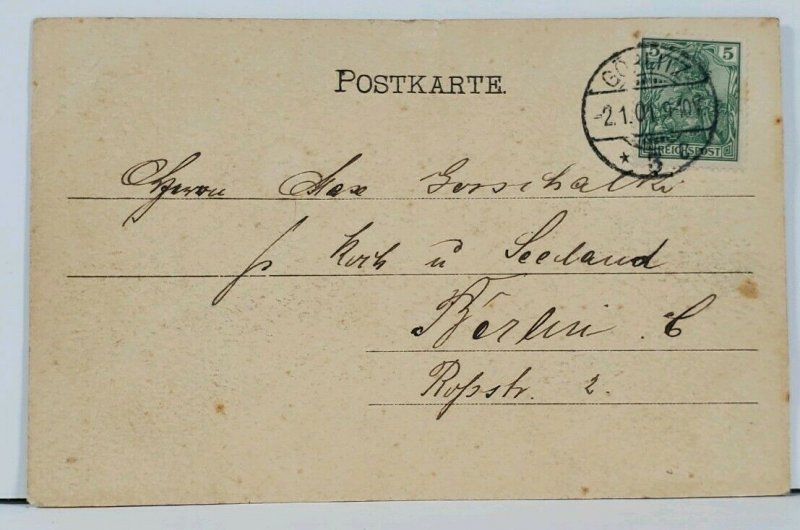 POSTKARTE.
5 5
GÖRLITZ
-2.1.01. 9-10V.
* 3
REICHSPOST
Herrn Max Gorschalki
p. Koch u Seeland
Berlin C
Roßstr. 2.